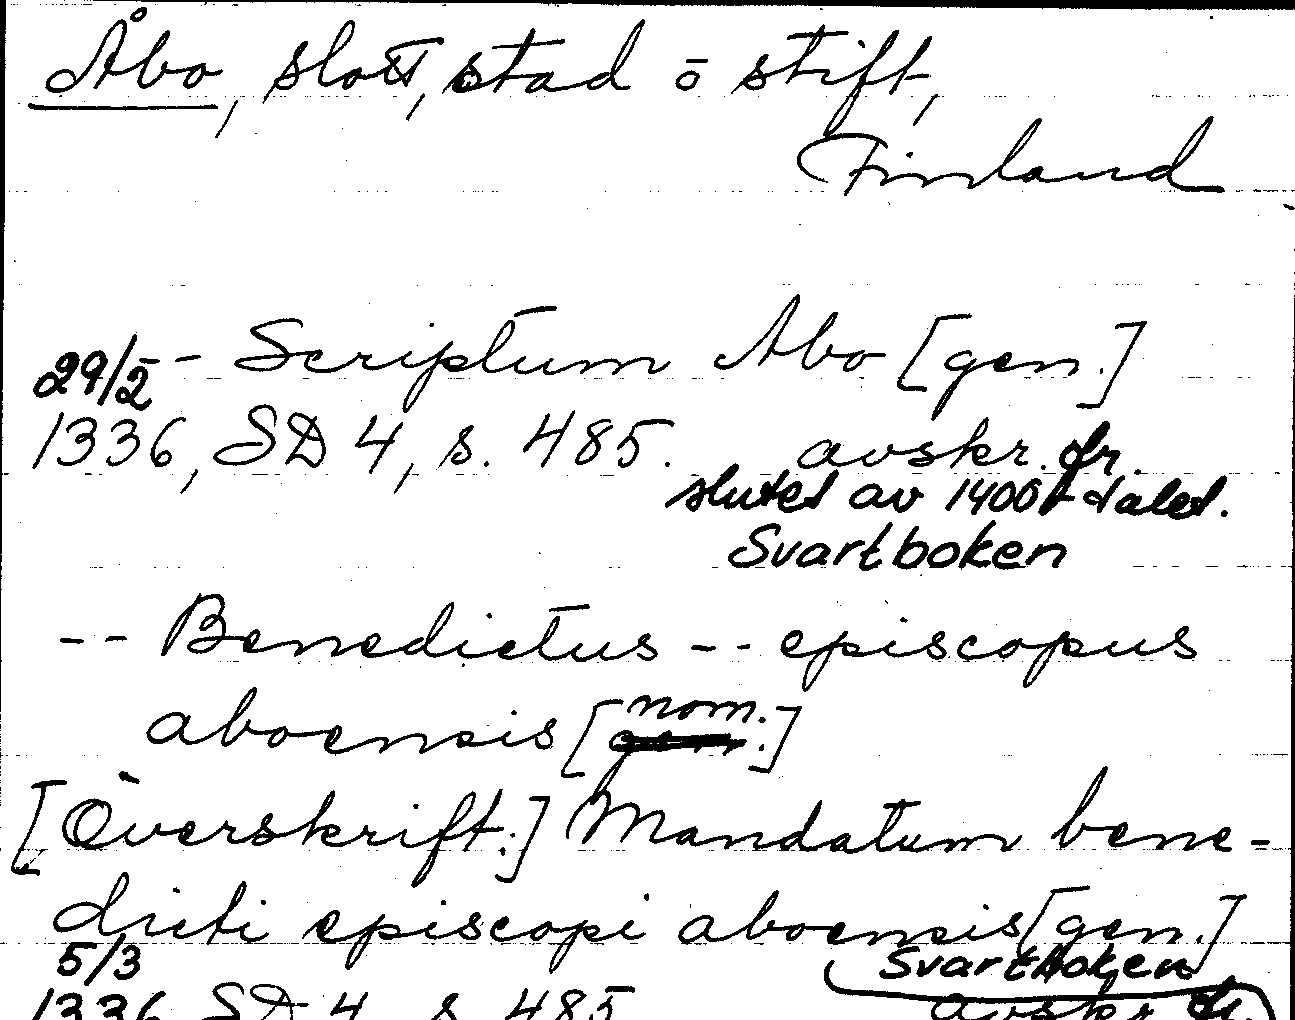 Åbo, slott, stad o stift,
Finland
29/2 - Scriptum Abo [gen.]
1336, SD 4, s. 485. avskr. fr.
slutet av 1400-talet.
Svartboken
-- Benedictus -- episcopus
aboensis [nom.]
[Överskrift:] Mandatum bene-
dicti episcopi aboensis [gen.]
5/3 Svartboken
1336 SD 4 s. 485 avskr. fr.